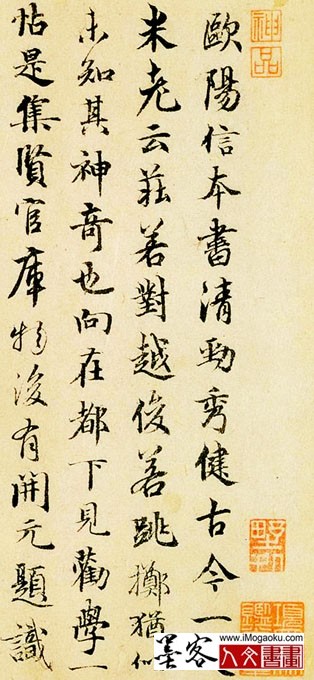 神品
歐陽信本書清勁秀健古今一
米老云莊若對越俊若跳擲猶似
未知其神奇也向在都下見勸學一
帖是集賢官庫物後有開元題識
www.iMogaoku.com
墨客
人文書畫